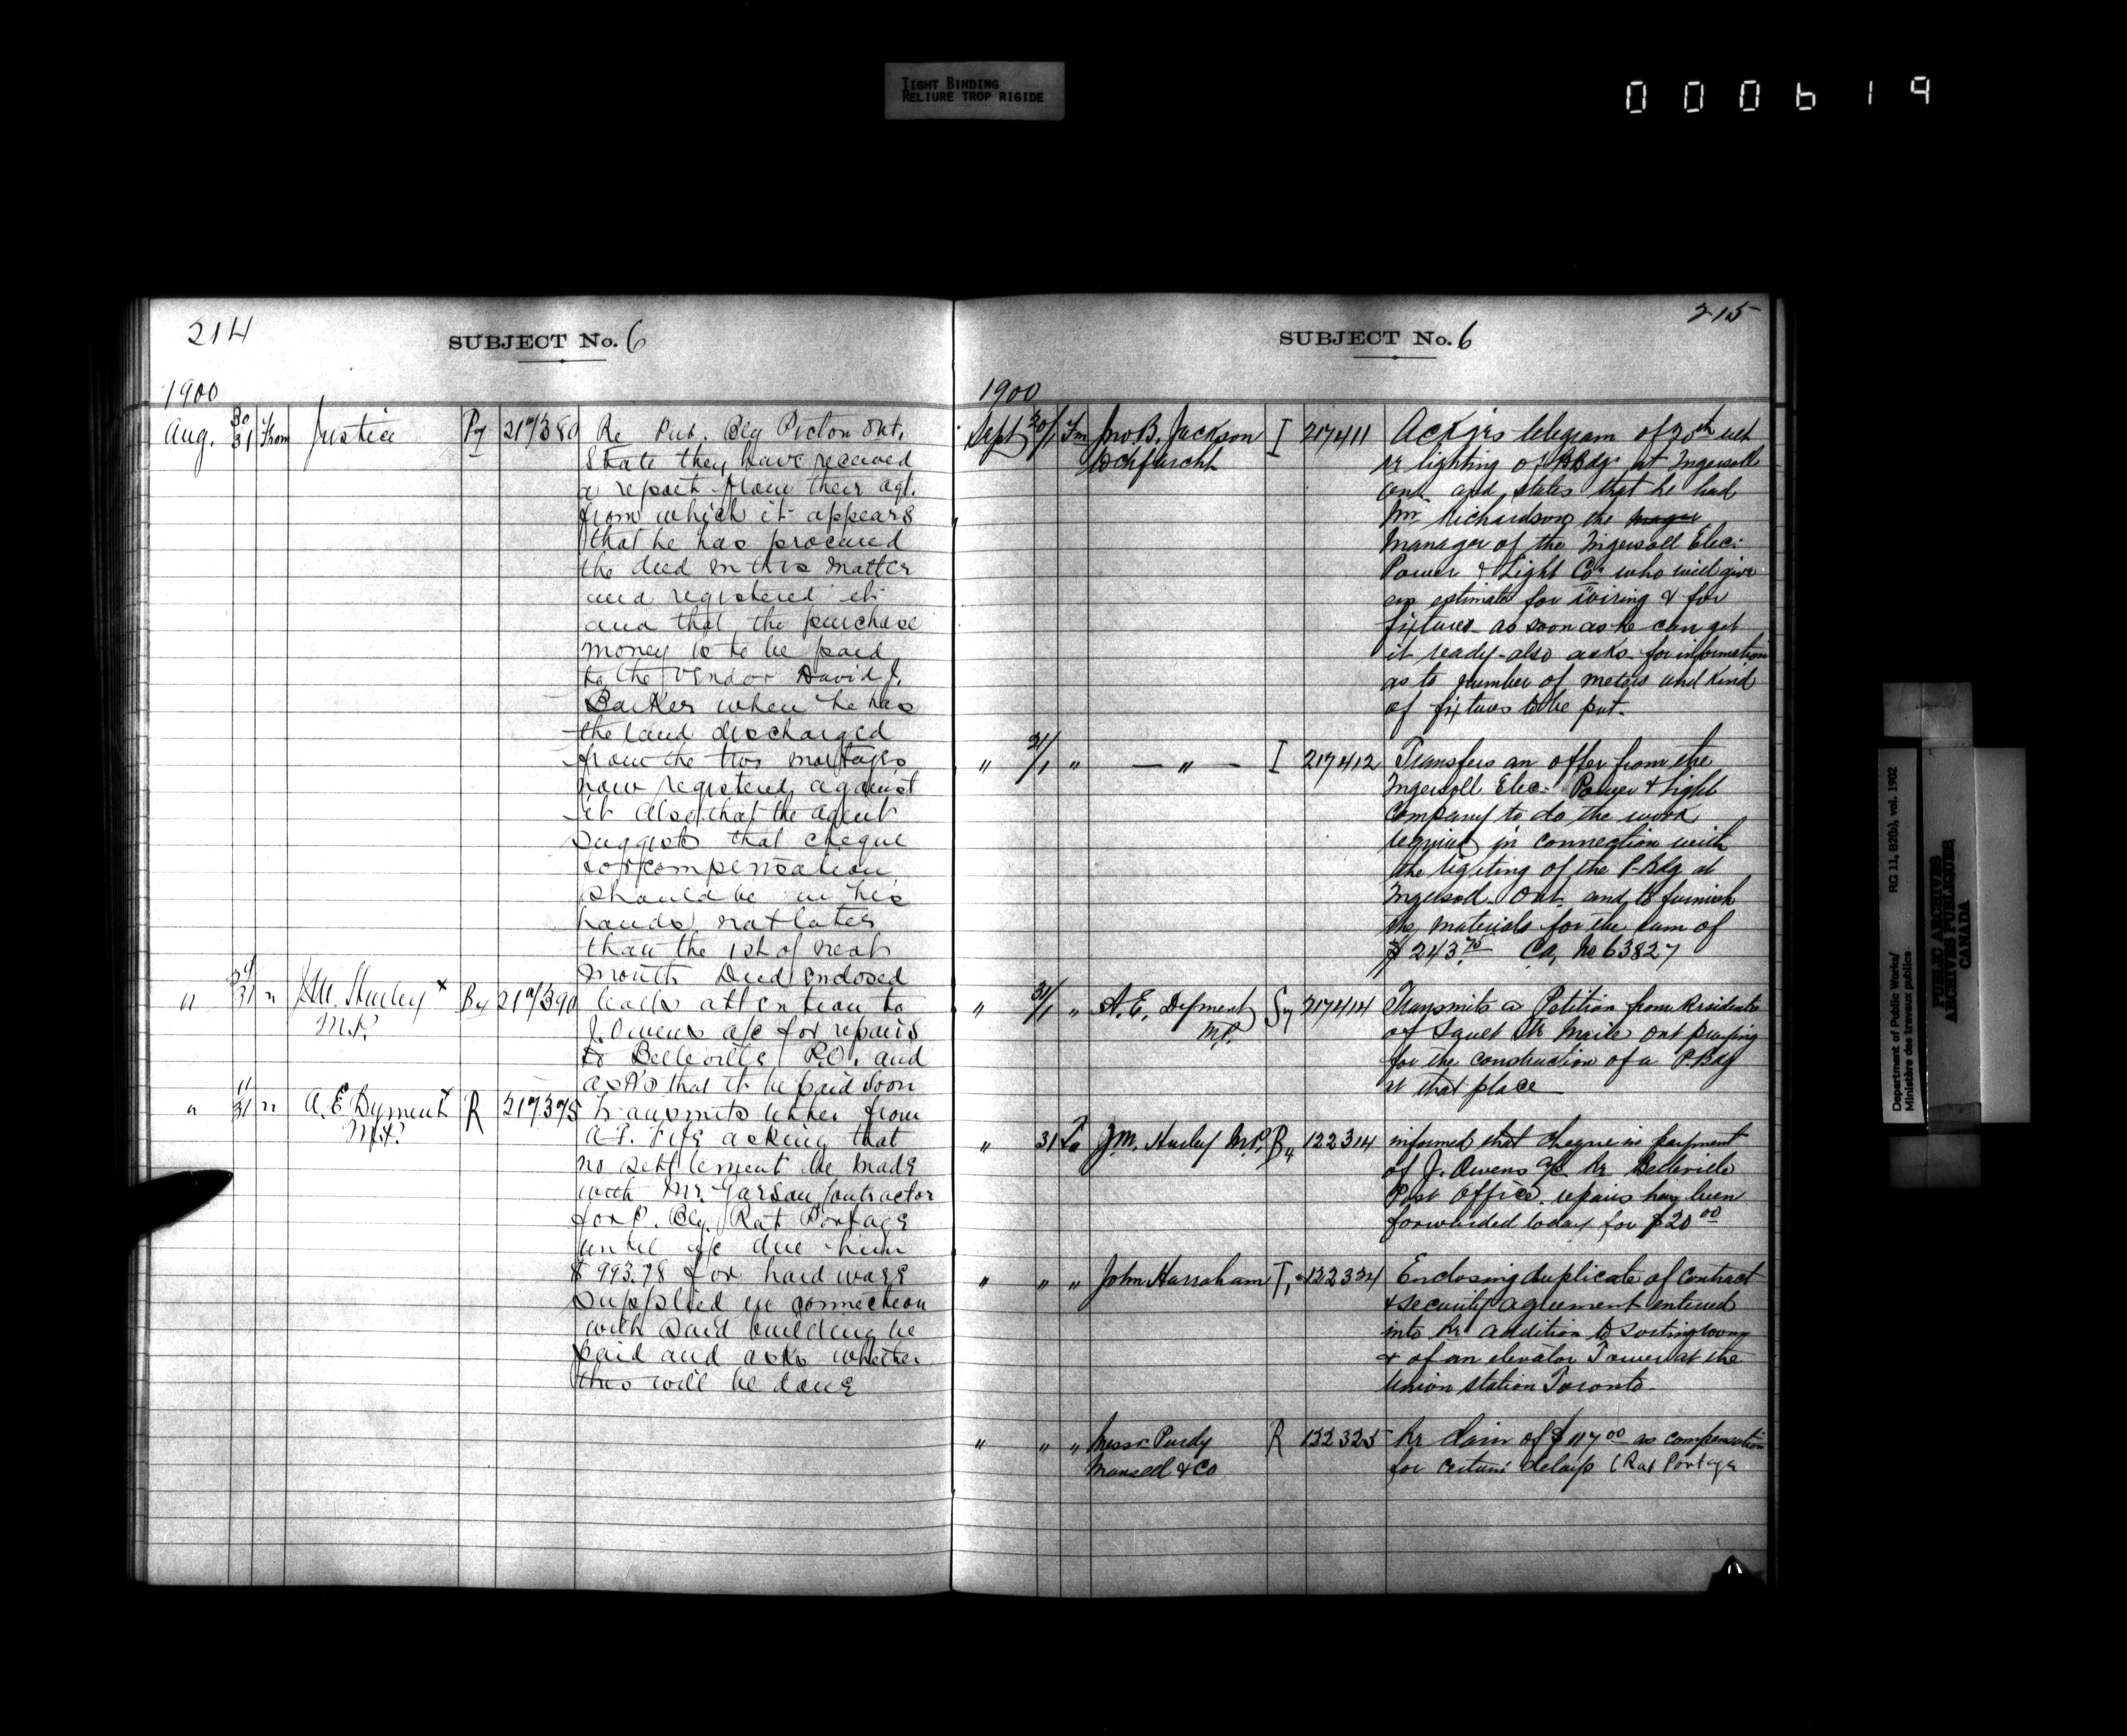 TIGHT BINDING
RELIURE TROP RIGIDE
000619
214
SUBJECT No. 6
1900
Aug. 30/31 From Justice 217380 Re Pub. Blg Picton Ont.
State they have received
a report from their agt.
from which it appears
that he has procured
the deed in this matter
and registered it
and that the purchase
money is to be paid
to the vendor David J.
Barker when he has
the land discharged
from the two mortages
now registered against
it also that the agent
suggests that cheque
for compensation
should be in his
hands not later
than the 1st of next
month Deed enclosed
" 29/31 " J.M. Hurley x By 217390 Calls attention to
M.P.
J. Owens a/c for repairs
to Belleville P.O. and
asks that it be paid soon
" 11/31 " A.E. Dyment x R 217375 Transmits letter from
M.P.
A.T. Fife asking that
no settlement be made
with Mr. Garson Contractor
for P. Blg. Rat Portage
until a/c due him
$993.78 for hardware
supplied in connection
with said building be
paid and asks whether
this will be done
215
SUBJECT No. 6
1900
Sept 30/1 Fm Jno. B. Jackson I 217411 Ackgs telegram of 30th ult
re lighting of P.Bdg. at Ingersoll
and states that he had
Mr Richardson the
Manager of the Ingersoll Elec.
Power & Light Co. who will give
an estimate for wiring & for
fixtures as soon as he can get
it ready - also asks for information
as to number of meters and kind
of fixtures to be put.
" 31/1 " — " — I 217412 Transfers an offer from the
Ingersoll Elec. Power & Light
Company to do the work
required in connection with
the lighting of the P-Bdg at
Ingersoll Ont. and to furnish
the materials for the sum of
$243.75 Ca, No 63827
" 31/1 " A.E. Dyment Sy 217414 Transmits a Petition from Residents
M.P.
of Sault Ste Marie Ont praying
for the construction of a P.Bdg
at that place
" 31 To J.M. Hurley M.P. By 122314 informed that cheque in payment
of J. Owens a/c Re Belleville
Post Office repairs has been
forwarded today for $20.00
" " " John Hanraham T, 122324 Enclosing duplicate of Contract
& security agreement entered
into Re addition to sorting room
& of an elevator Tower at the
Union Station Toronto.
" " " Messrs Purdy R 122325 Re Claim of $117.00 as compensation
Mansell & Co
for certain delays (Rat Portage
Department of Public Works/ RG 11, B2(b), vol. 1902
Ministère des travaux publics
PUBLIC ARCHIVES
ARCHIVES PUBLIQUES
CANADA